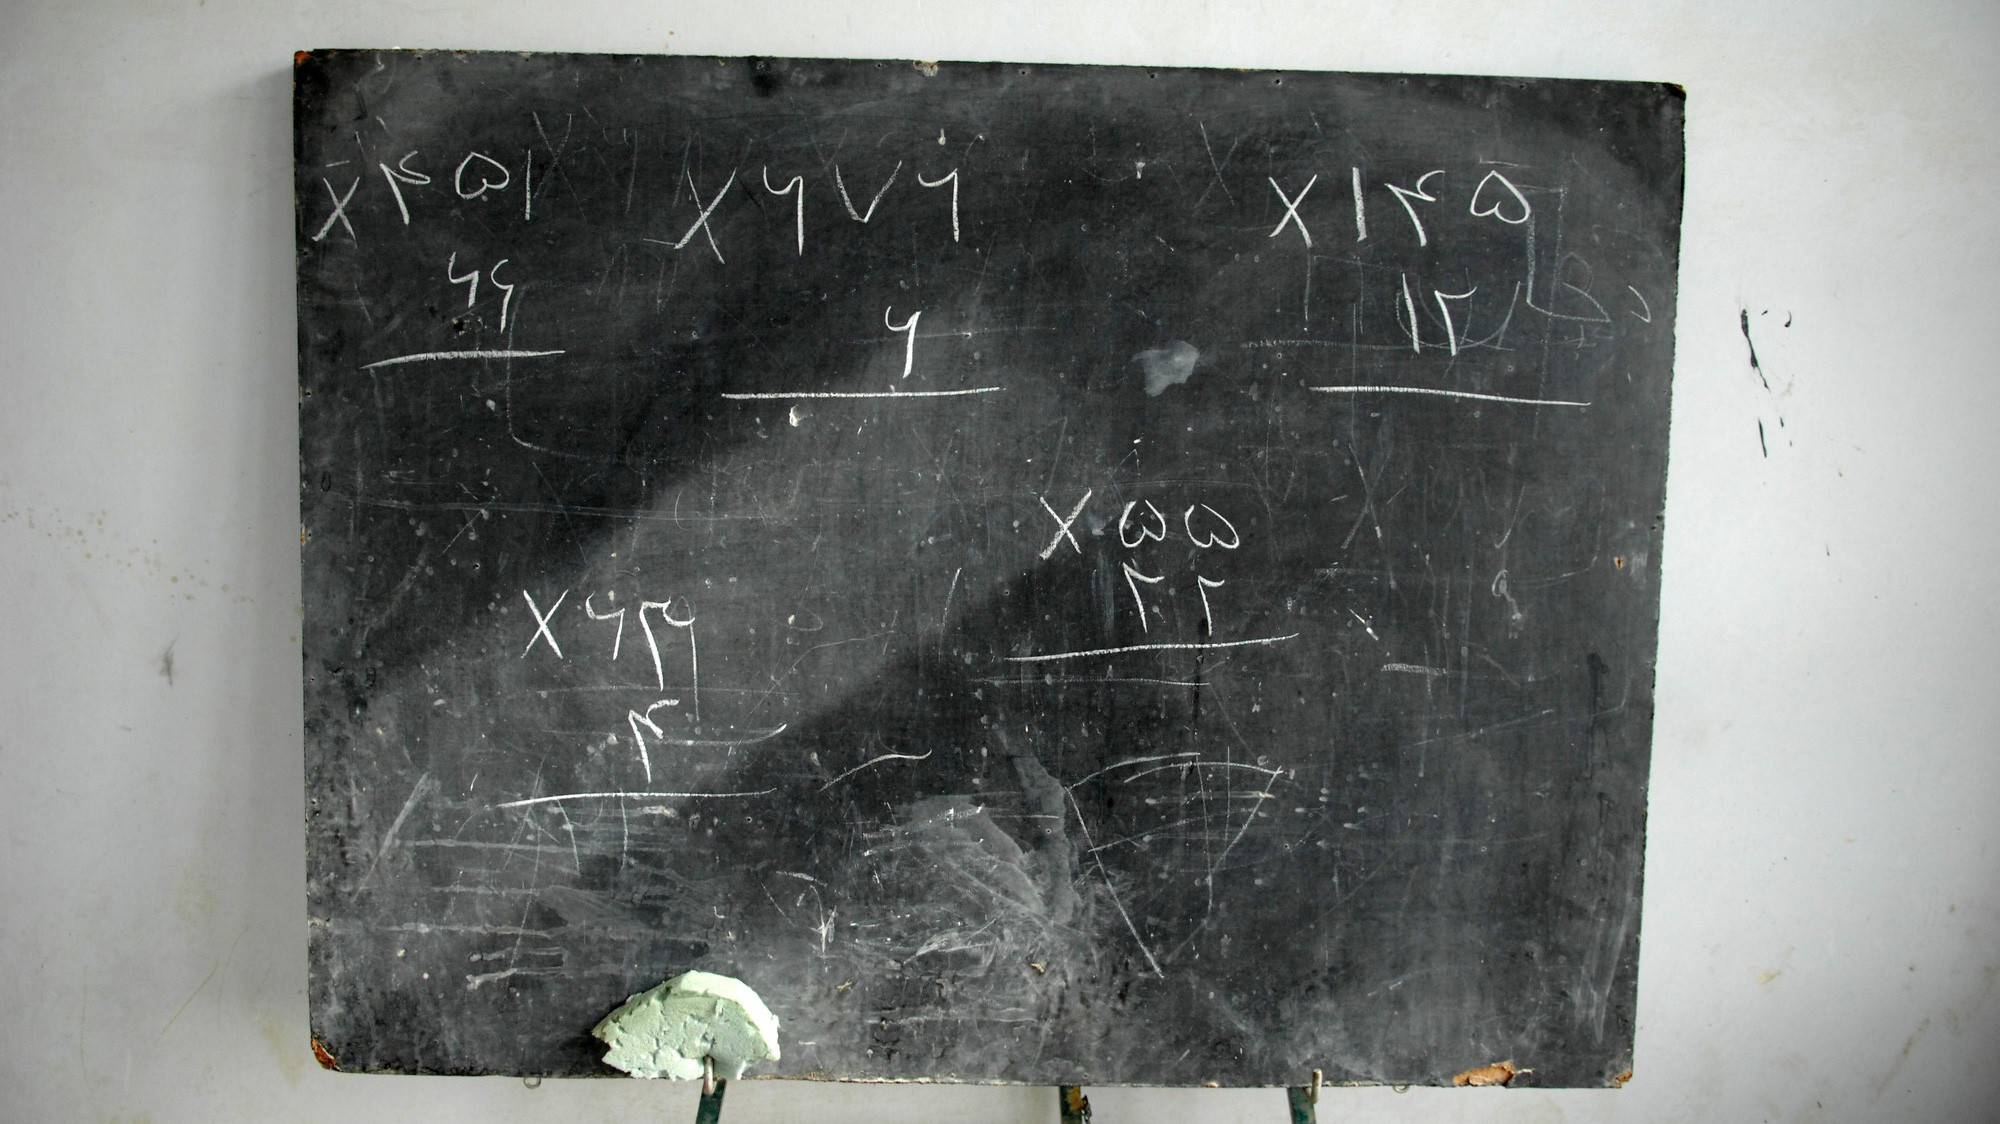 X ۴۵۱
۶۶
X ۶۷۶
۶
X ۱۴۵
۱۲
X ۵۵
۲۲
X ۶۳۹
۴